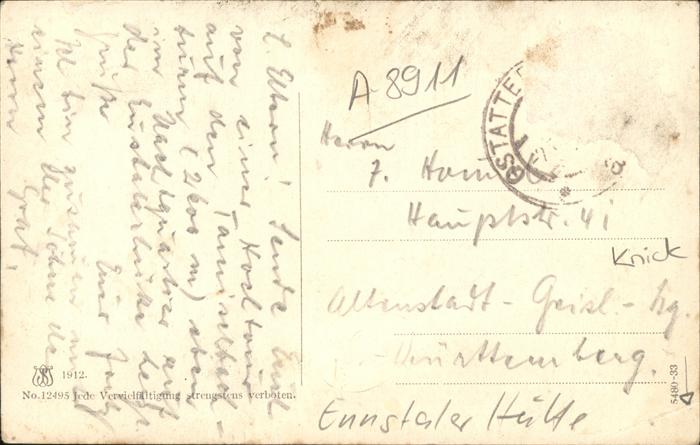 L. Eltern! Sende Euch
von einer Hochtour
auf den Tamischbach-
turm (2600 m) eben
im Nachtquartier auf
der Ennstalerhütte herzl.
Grüße Euer
Ich bin zusammen mit
einem der Söhne des
Herrn Graf.
A-8911
STATTE
Herrn
J.
Hauptstr. 41
Knick
Altenstadt - Geisl. - Stg.
Württemberg.
Ennstaler Hütte
1912.
No. 12495 Jede Vervielfältigung strengstens verboten.
5480-33